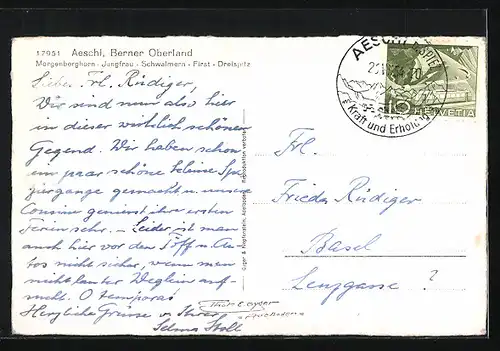 17951 Aeschi, Berner Oberland
Morgenberghorn - Jungfrau - Schwalmern - First - Dreispitz
Liebe Frl. Rüdiger,
Wir sind nun also hier
in dieser wirklich schönen
Gegend. Wir haben schon
ein paar schöne kleine Spa-
ziergänge gemacht u. unsere
Cousine geniesst ihre ersten
Ferien sehr. – Leider ist man
auch hier vor den Töff u. Au-
tos nicht sicher, wenn man
nicht lauter Weglein auf-
sucht. O tempora!
Herzliche Grüsse v. Ihrer
Selma Stoll
Reproduktion verboten
AESCHI
Kraft und Erholung
10
HELVETIA
Frl.
Frieda Rüdiger
Basel
Lenzgasse ?